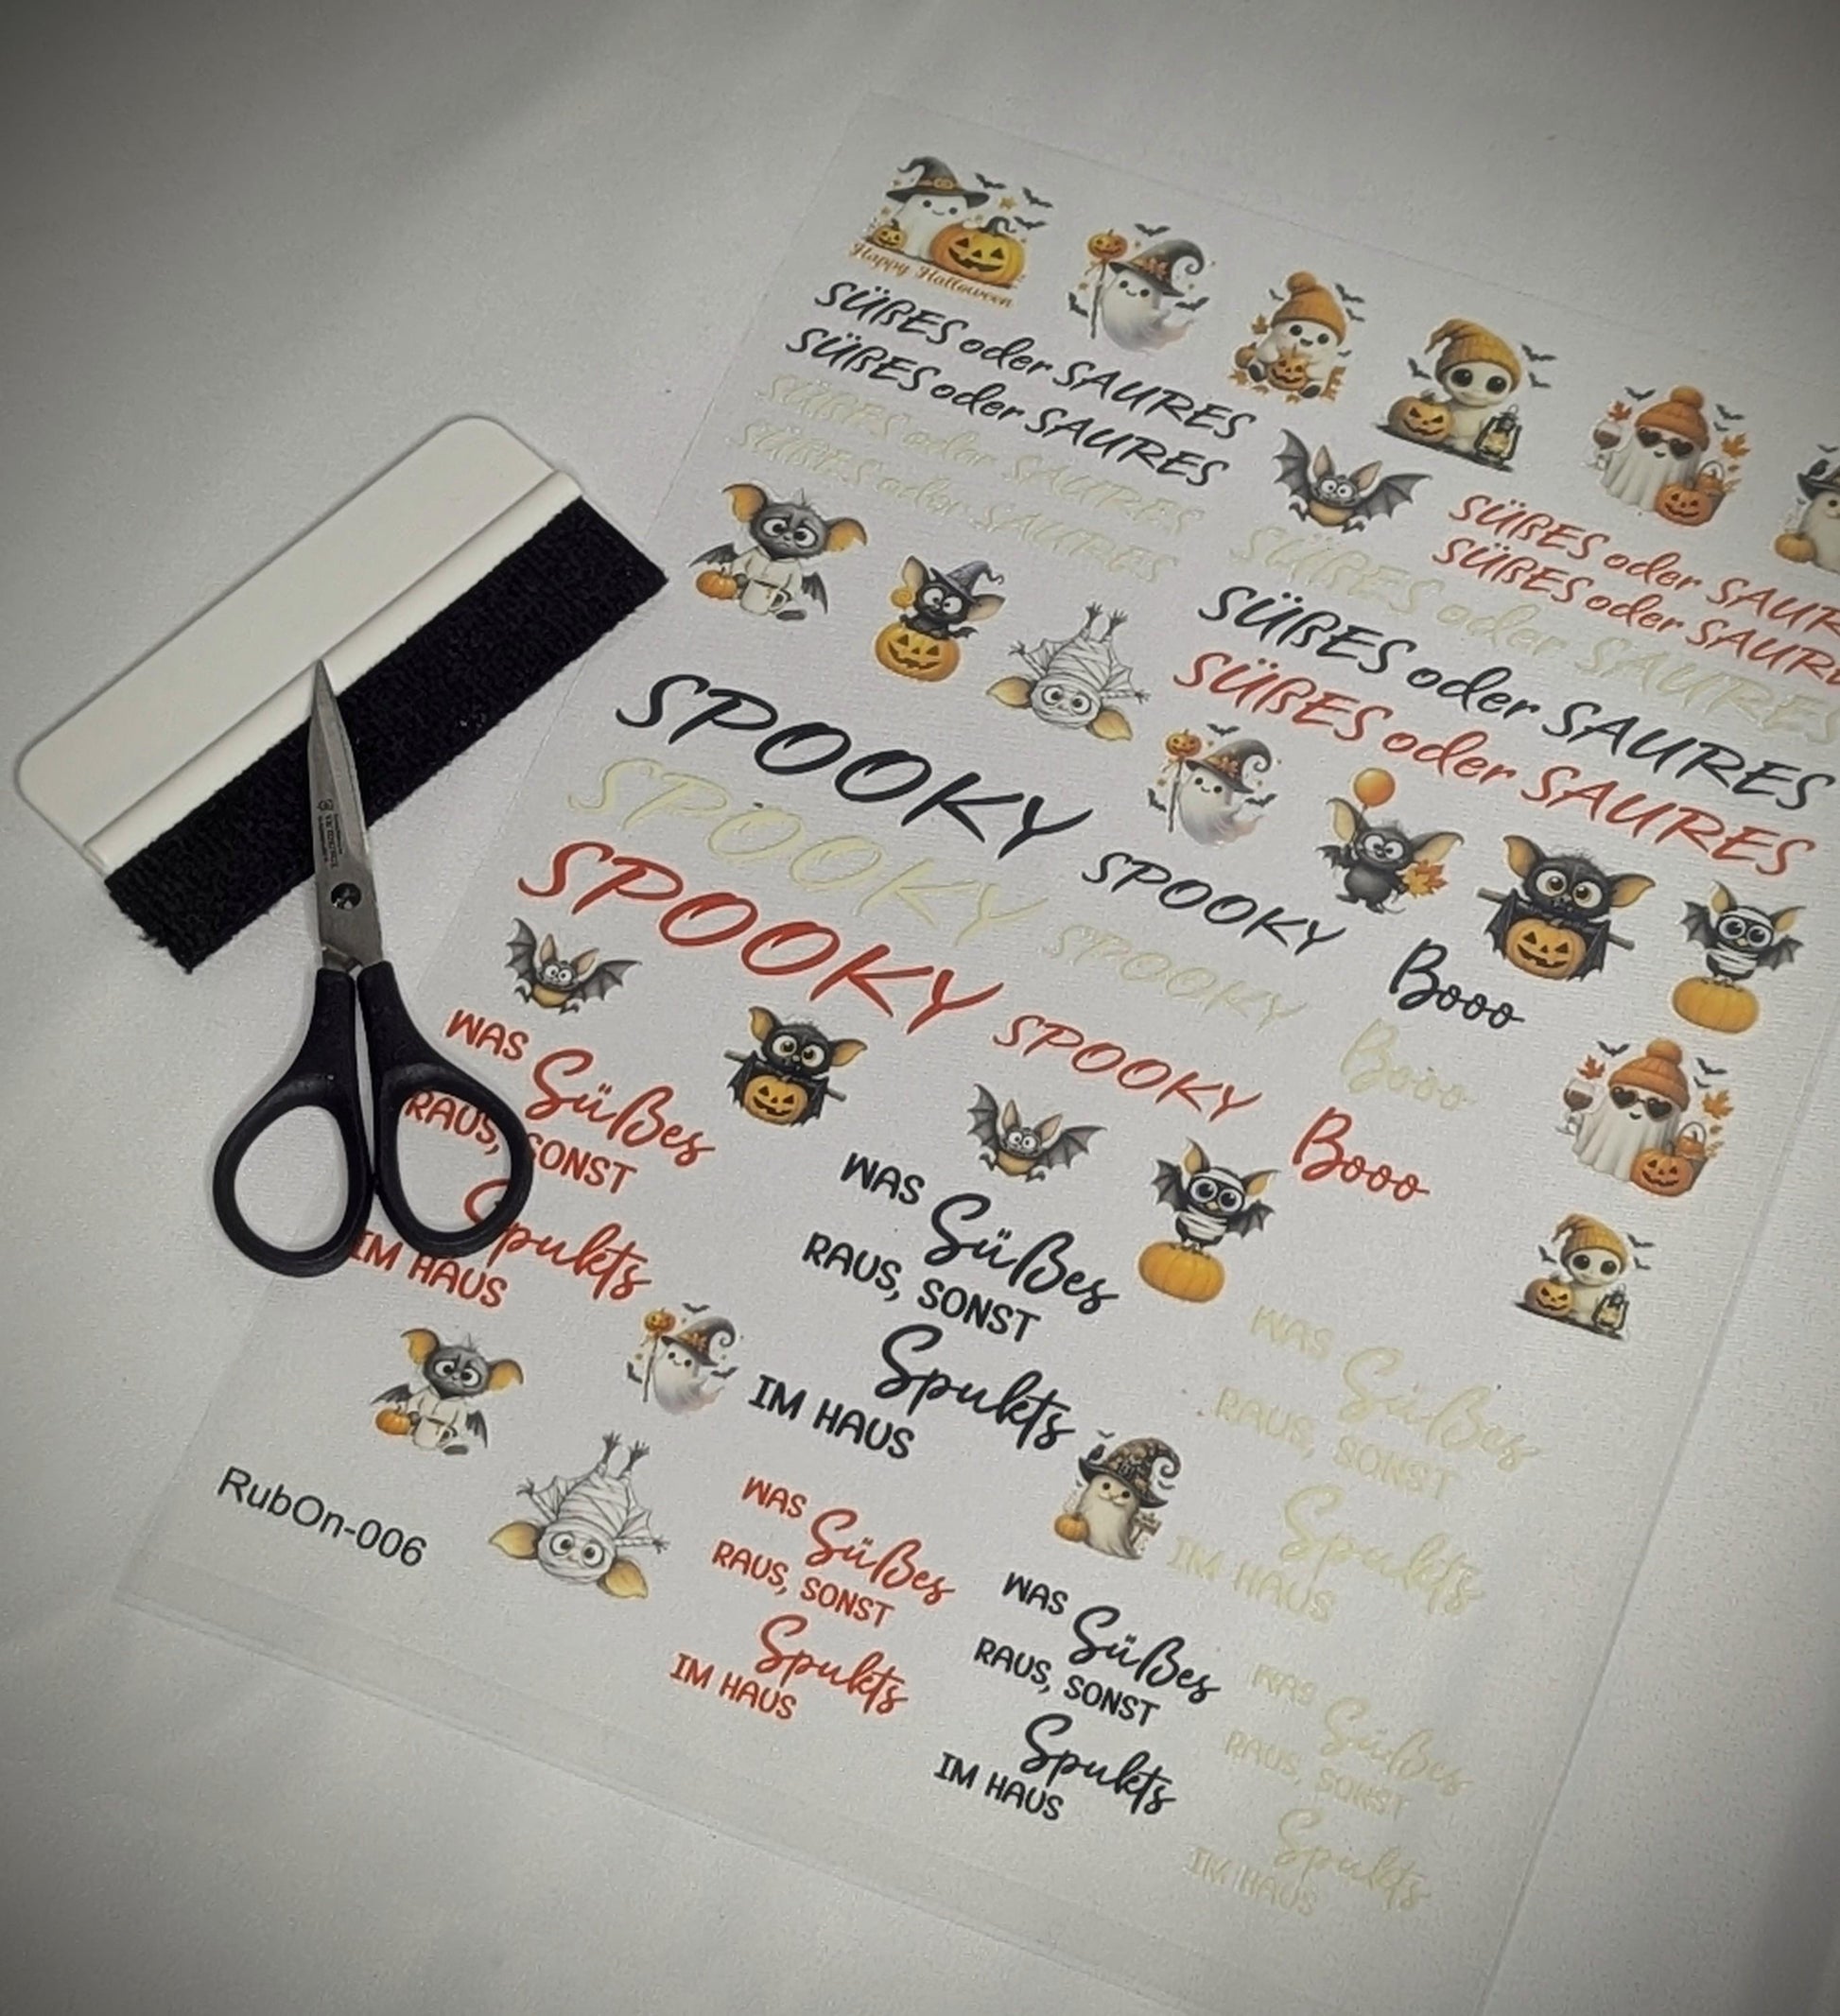 Happy Halloween
SÜßES oder SAURES
SÜßES oder SAURES
SÜßES oder SAURES
SÜßES oder SAURES
SÜßES oder SAUR
SÜßES oder SAURE
SÜßES oder SAURES
SÜßES oder SAURES
SÜßES oder SAURES
SPOOKY
SPOOKY
SPOOKY
SPOOKY
SPOOKY
SPOOKY
Booo
Booo
Booo
WAS Süßes
RAUS, SONST
Spukts
IM HAUS
WAS Süßes
RAUS, SONST
Spukts
IM HAUS
WAS Süßes
RAUS, SONST
Spukts
IM HAUS
WAS Süßes
RAUS, SONST
Spukts
IM HAUS
WAS Süßes
RAUS, SONST
Spukts
IM HAUS
WAS Süßes
RAUS, SONST
Spukts
IM HAUS
RubOn-006